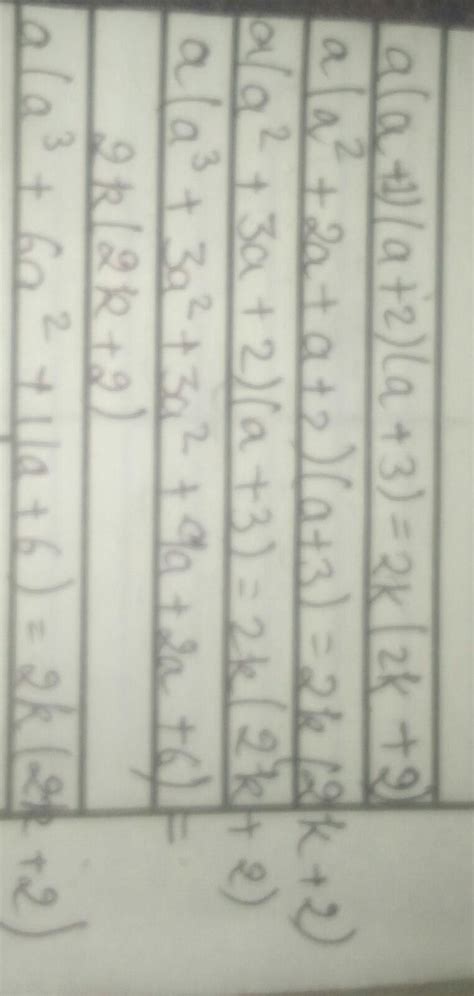 a(a+1)(a+2)(a+3) = 2k(2k+2)
a(a² + 2a + a + 2)(a+3) = 2k(2k+2)
a(a² + 3a + 2)(a+3) = 2k(2k+2)
a(a³ + 3a² + 3a² + 9a + 2a + 6) =
2k(2k+2)
a(a³ + 6a² + 11a + 6) = 2k(2k+2)